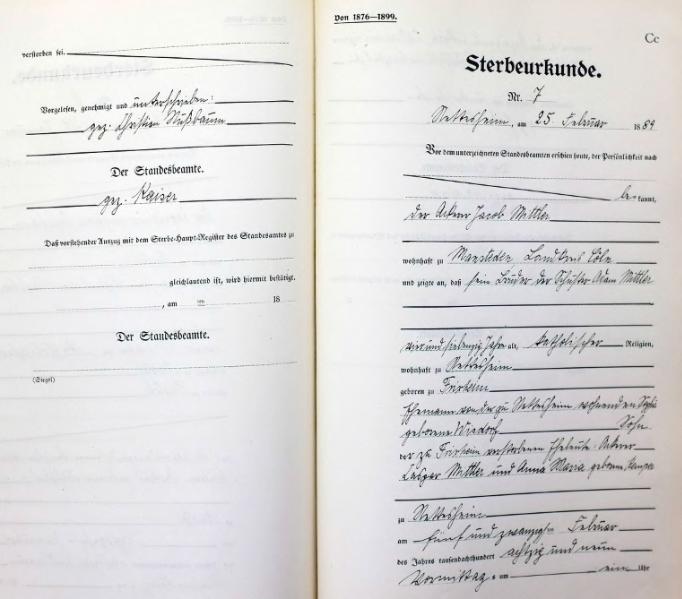 verstorben sei.
Vorgelesen, genehmigt und unterschrieben:
gez. Christian Nußbaum
Der Standesbeamte.
gez. Kaiser
Daß vorstehender Auszug mit dem Sterbe-Haupt-Register des Standesamtes zu
gleichlautend ist, wird hiermit bestätigt.
, am ten 18
Der Standesbeamte.
(Siegel)
Von 1876—1899.
Cc
Sterbeurkunde.
Nr. 7
Nettesheim, am 25 Februar 1889
Vor dem unterzeichneten Standesbeamten erschien heute, der Persönlichkeit nach
be kannt,
der Ackerer Jacob Mittler
wohnhaft zu Landkreis Cöln
und zeigte an, daß sein Bruder der Schuster Adam Mittler
vier und siebenzig Jahre alt, katholischer Religion,
wohnhaft zu Nettesheim
geboren zu Frixheim
Ehemann von der zu Nettesheim wohnenden
geborene Sohn
der zu Frixheim verstorbenen Eheleute Ackerer
Caspar Mittler und Anna Maria geborene
zu Nettesheim
am fünf und zwanzigsten Februar
des Jahres tausendachthundert achtzig und neun
Vormittag s um ein Uhr